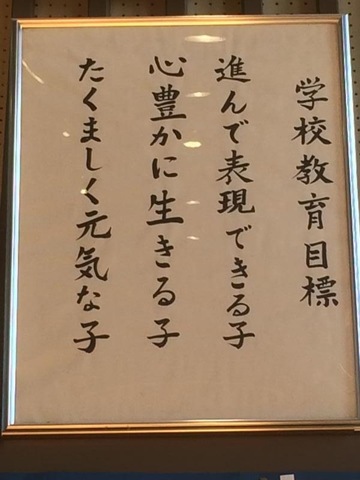 学校教育目標
進んで表現できる子
心豊かに生きる子
たくましく元気な子